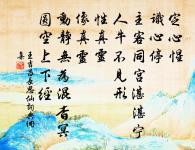 定心性
識心停
主客同宮湛湛宁
人牛不見形
性真靈
像真靈
動靜無為混杳冥
圓空上下經
王吉昌長思仙詞句
集